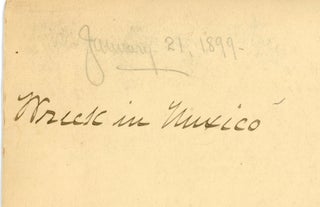 January 21, 1899-
Wreck in Mexico